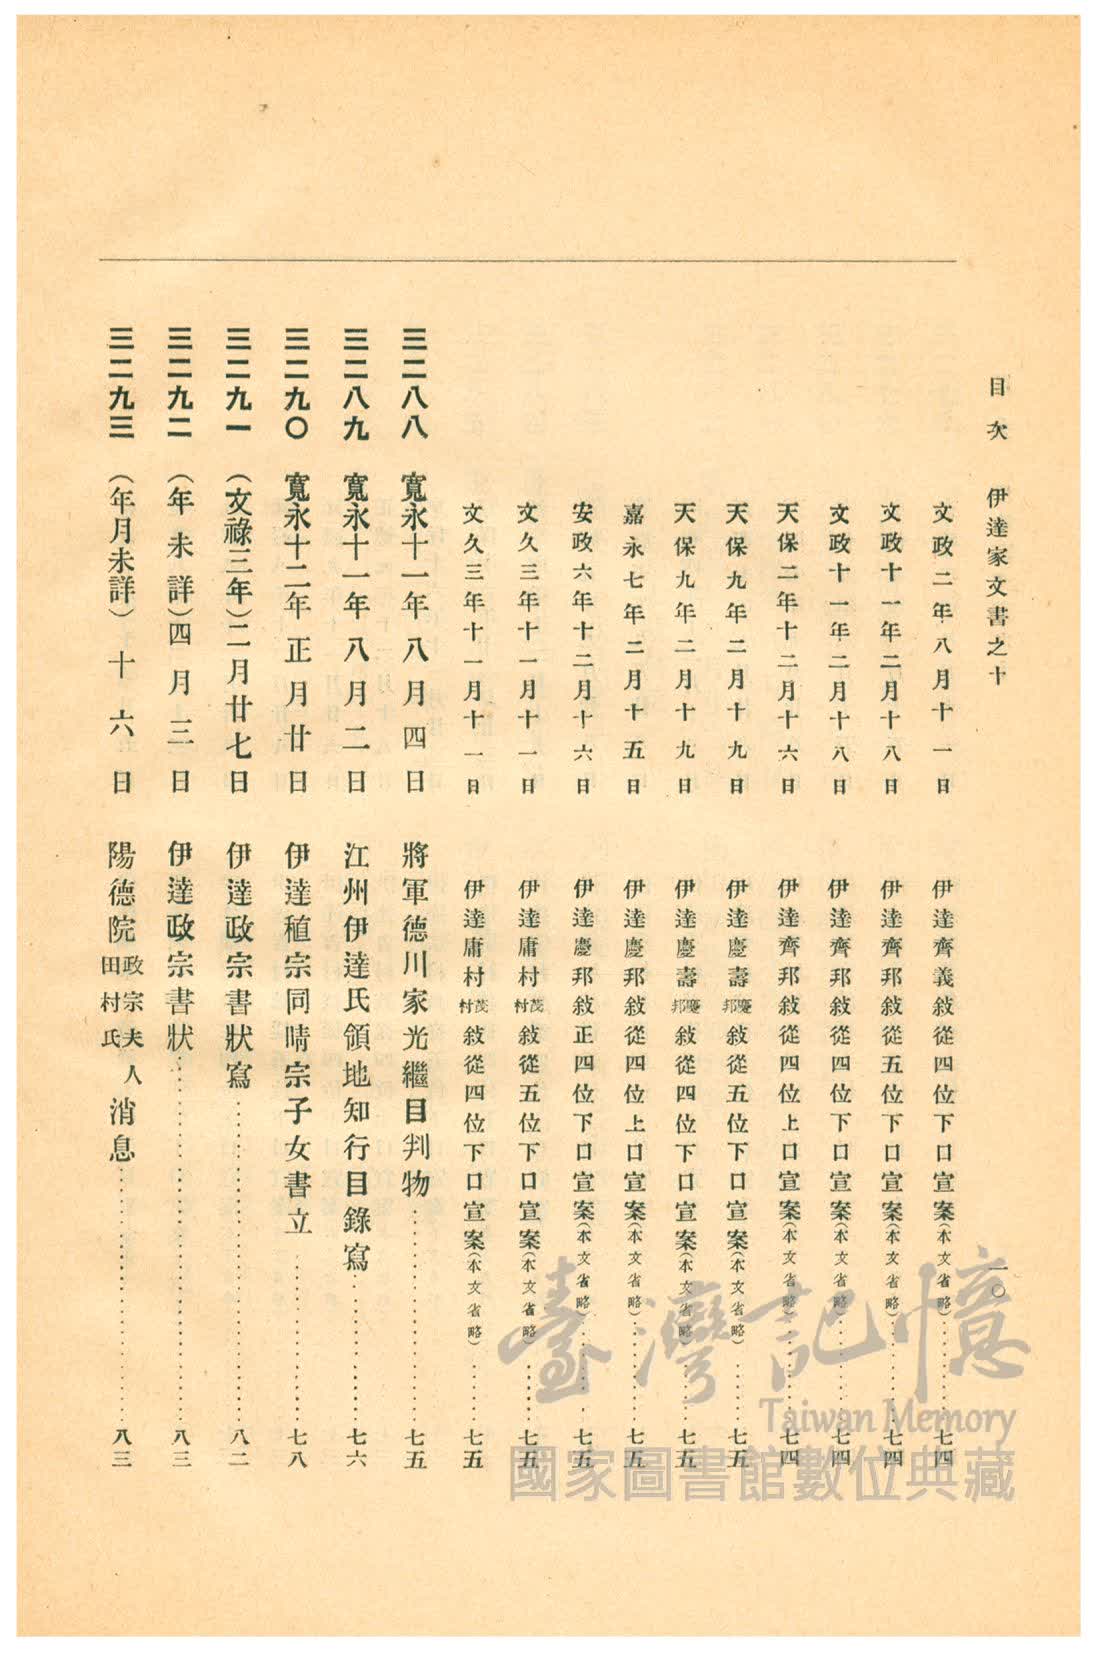 目次 伊達家文書之十 一〇
文政二年八月十一日 伊達齊義敍從四位下口宣案(本文省略)……七四
文政十一年二月十八日 伊達齊邦敍從五位下口宣案(本文省略)……七四
文政十一年二月十八日 伊達齊邦敍從四位下口宣案(本文省略)……七四
天保二年十二月十六日 伊達齊邦敍從四位上口宣案(本文省略)……七四
天保九年二月十九日 伊達慶壽慶邦敍從五位下口宣案(本文省略)……七五
天保九年二月十九日 伊達慶壽慶邦敍從四位下口宣案(本文省略)……七五
嘉永七年二月十五日 伊達慶邦敍從四位上口宣案(本文省略)……七五
安政六年十二月十六日 伊達慶邦敍正四位下口宣案(本文省略)……七五
文久三年十一月十一日 伊達庸村茂村敍從五位下口宣案(本文省略)……七五
文久三年十一月十一日 伊達庸村茂村敍從四位下口宣案(本文省略)……七五
三二八八 寬永十一年八月四日 將軍德川家光繼目判物……七五
三二八九 寬永十一年八月二日 江州伊達氏領地知行目錄寫……七六
三二九〇 寬永十二年正月廿日 伊達稙宗同晴宗子女書立……七八
三二九一 (文祿三年)二月廿七日 伊達政宗書狀寫……八二
三二九二 (年未詳)四月三日 伊達政宗書狀……八三
三二九三 (年月未詳)十六日 陽德院政宗夫人田村氏消息……八三
臺灣記憶
Taiwan Memory
國家圖書館數位典藏